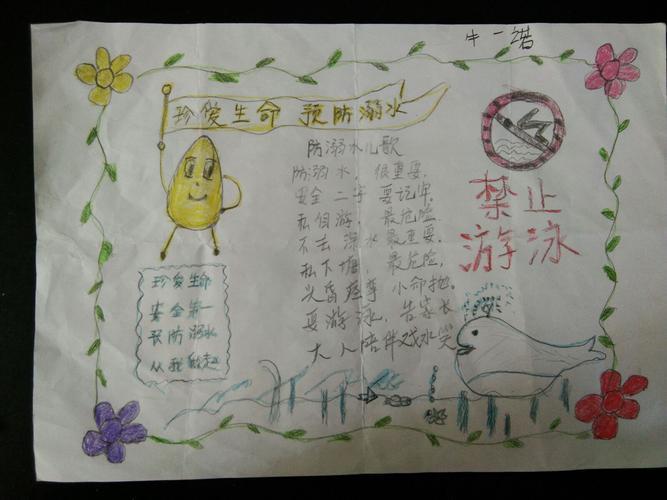 牛一诺
珍爱生命 预防溺水
防溺水儿歌
防溺水，很重要，
安全二字要记牢。
私自游，最危险
不去深水最重要。
私下塘，最危险，
头昏 小命抛。
要游泳，告家长
大人陪伴戏水笑
禁止
游泳
珍爱生命
安全第一
预防溺水
从我做起